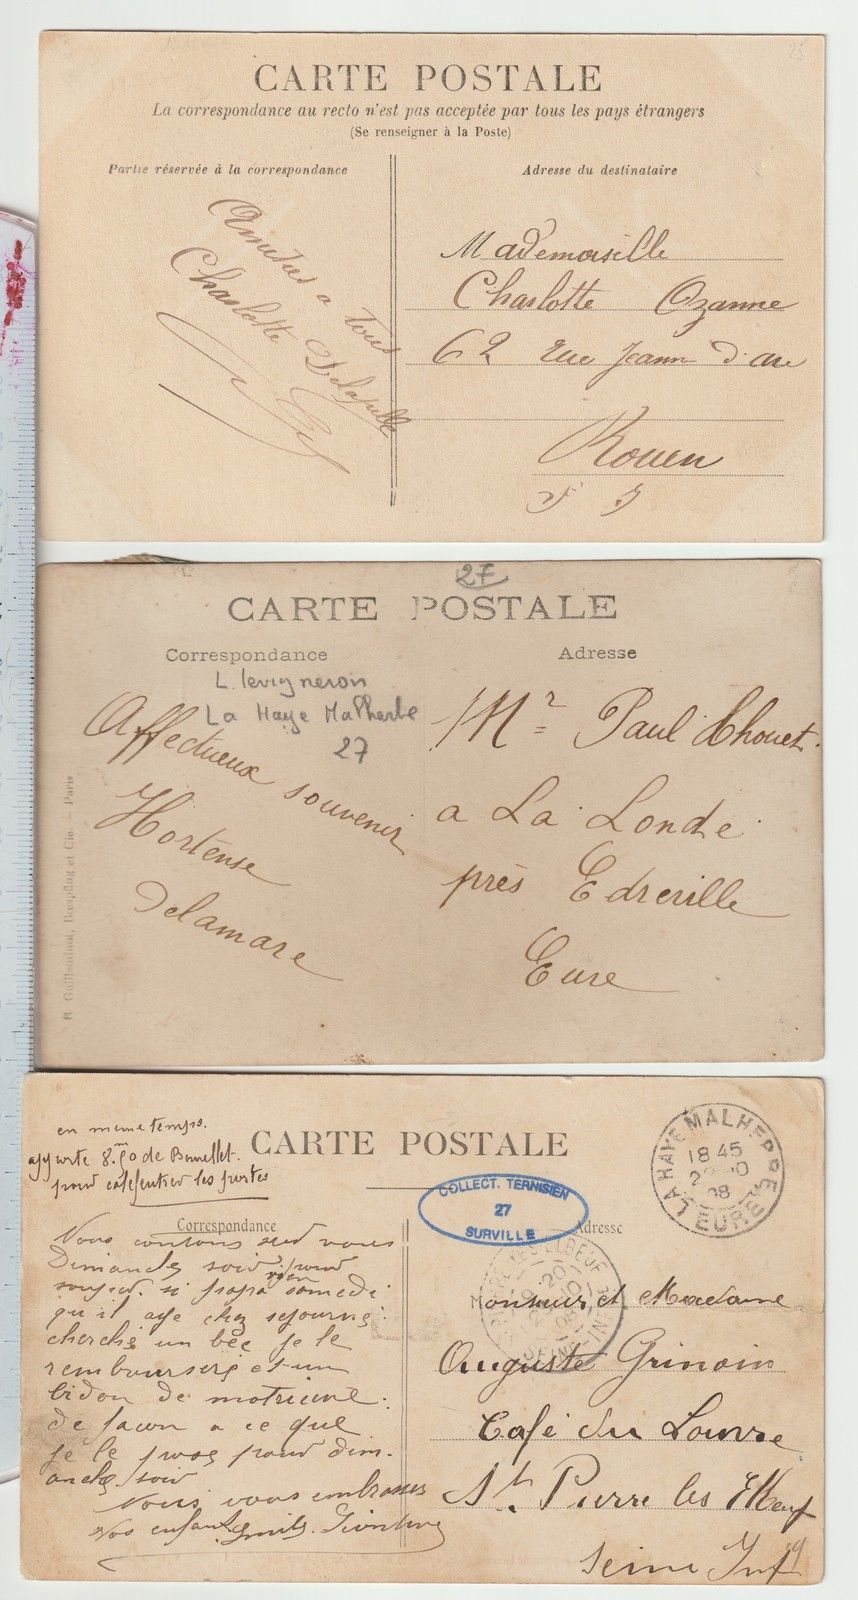 CARTE POSTALE
La correspondance au recto n'est pas acceptée par tous les pays étrangers
(Se renseigner à la Poste)
Partie réservée à la correspondance
Adresse du destinataire
Amitiés a tous
Charlotte
Mademoiselle
Charlotte Ozanne
62 rue Jeanne d'arc
Rouen
27
CARTE POSTALE
Correspondance
Adresse
L. levigneron
La Haye Malherbe
27
Affectueux souvenir
Hortense
Delamare
Mr Paul Chouet.
a La Londe
près Edreville
Eure
et Cie. - Paris
en meme temps.
de
pour les portes
CARTE POSTALE
LA HAYE MALHERBE
18 45
08
EURE
COLLECT. TERNISIEN
27
SURVILLE
Correspondance
Adresse
Nous contons sur vous
Dimanche soir pour
souper. si papa samedi
qu'il aye chez sejourné
cherché un bec je le
rembourseré et un
bidon de
de facon a ce que
je le pour dim-
anche soir
Nous vous embrasses
Nos enfants
Monsieur et Madame
Auguste Grinoin
Café du Louvre
St. Pierre les Elbeuf
Seine Inf